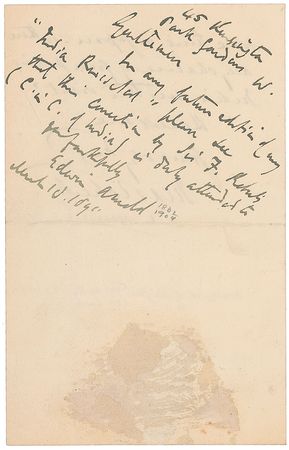 45 Kensington
Park Gardens W.
Gentlemen
In any future edition of my
"India Revisited", please see
that this correction by Sir F. Roberts
(C. in C. of India) is duly attended to
yrs faithfully
Edwin Arnold
1832
1904
March 10. 1890